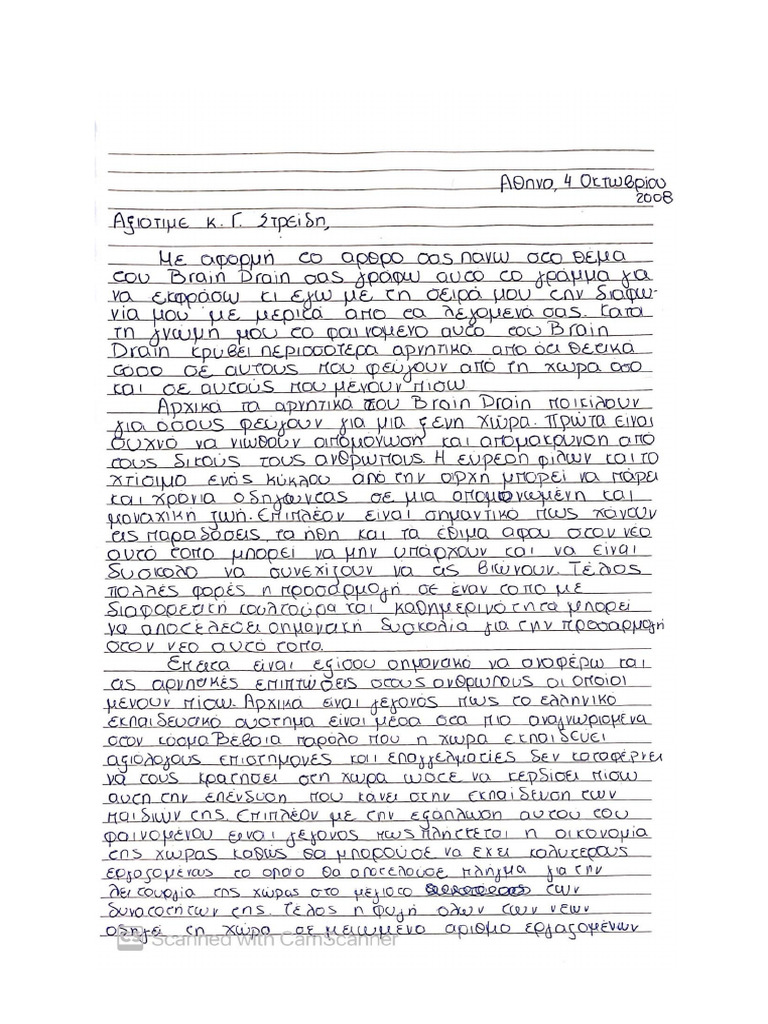 Αθηνα, 4 Οκτωβρίου
2008
Αξιοτιμε κ. Γ. Στρείδη,
Με αφορμή το αρθρο σας πανω στο θέμα
του Brain Drain σας γράφω αυτο το γράμμα για
να εκφράσω κι εγω με τη σειρά μου την διαφω-
νία μου με μερικά απο τα λεγομενά σας. Κατα
τη γνώμη μου το φαινομενο αυτο του Brain
Drain κρυβει περισσοτερα αρνητικα απο ότι θετικά
τοσο σε αυτους που φεύγουν από τη χωρα οσο
και σε αυτούς που μενουν πισω
Αρχικά τα αρνητικα του Brain Drain ποικίλουν
για οσους φεύγουν για μια ξενη χώρα. Πρώτα ειναι
συχνό να νιωθουν απομόνωση και απομακρυνση από
τους δικούς τους ανθρωπους. Η ευρεση φιλων και το
χτίσιμο ενός κύκλου από την αρχη μπορεί να πάρει
και χρόνια οδηγωντας σε μια απομονωμένη και
μοναχικη ζωη. Επιπλέον ειναι σημαντικό πως χάνουν
τις παραδόσεις, τα ήθη και τα έθιμα αφου στον νεο
αυτό τοπο μπορεί να μην υπάρχουν και να είναι
δυσκολο να συνεχιζουν να τις βιώνουν. Τέλος
πολλές φορές η προσαρμογή σε έναν τοπο με
διαφορετική κουλτούρα και καθημερινότητα μπορεί
να αποτελέσει σημαντική δυσκολία για την προσαρμογή
στον νεο αυτό τοπο.
Επειτα είναι εξίσου σημαντικό να αναφέρω και
τις αρνητικές επιπτώσεις στους ανθρωπους οι οποίοι
μενουν πισω. Αρχικα είναι γεγονός πως το ελληνικό
εκπαιδευτικό συστημα είναι μέσα στα πιο αναγνωρισμενα
στον κοσμο. Βεβαια παρόλο που η χωρα εκπαιδευει
αξιολογους επιστημονες και επαγγελματίες δεν καταφέρνει
να τους κρατησει στη χωρα ωστε να κερδισει πισω
αυτη την επένδυση που κάνει στην εκπαίδευση των
παιδιών της. Επιπλέον με την εξαπλωση αυτου του
φαινομένου ειναι γεγονος πως πληττεται η οικονομία
της χωρας καθώς θα μπορούσε να εχει καλυτερους
εργαζομένους το οποιο θα αποτελουσε πληγμα για την
λειτουργία της χώρας στο μεγιστο των
δυνατοτήτων της. Τελος η φυγή ολων των νεων
οδηγεί τη χώρα σε μειωμενο αριθμο εργαζομένων
CS Scanned with CamScanner